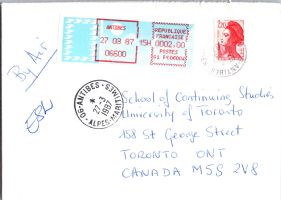 ANTIBES
27 03 87 15H 0002.00
06600
REPUBLIQUE
FRANCAISE
POSTES
2,20
By Air
ESL
06-ANTIBES
27-3
1987
ALPES-MARITIMES
School of Continuing Studies
University of Toronto
158 St George Street
TORONTO ONT
CANADA M5S 2V8